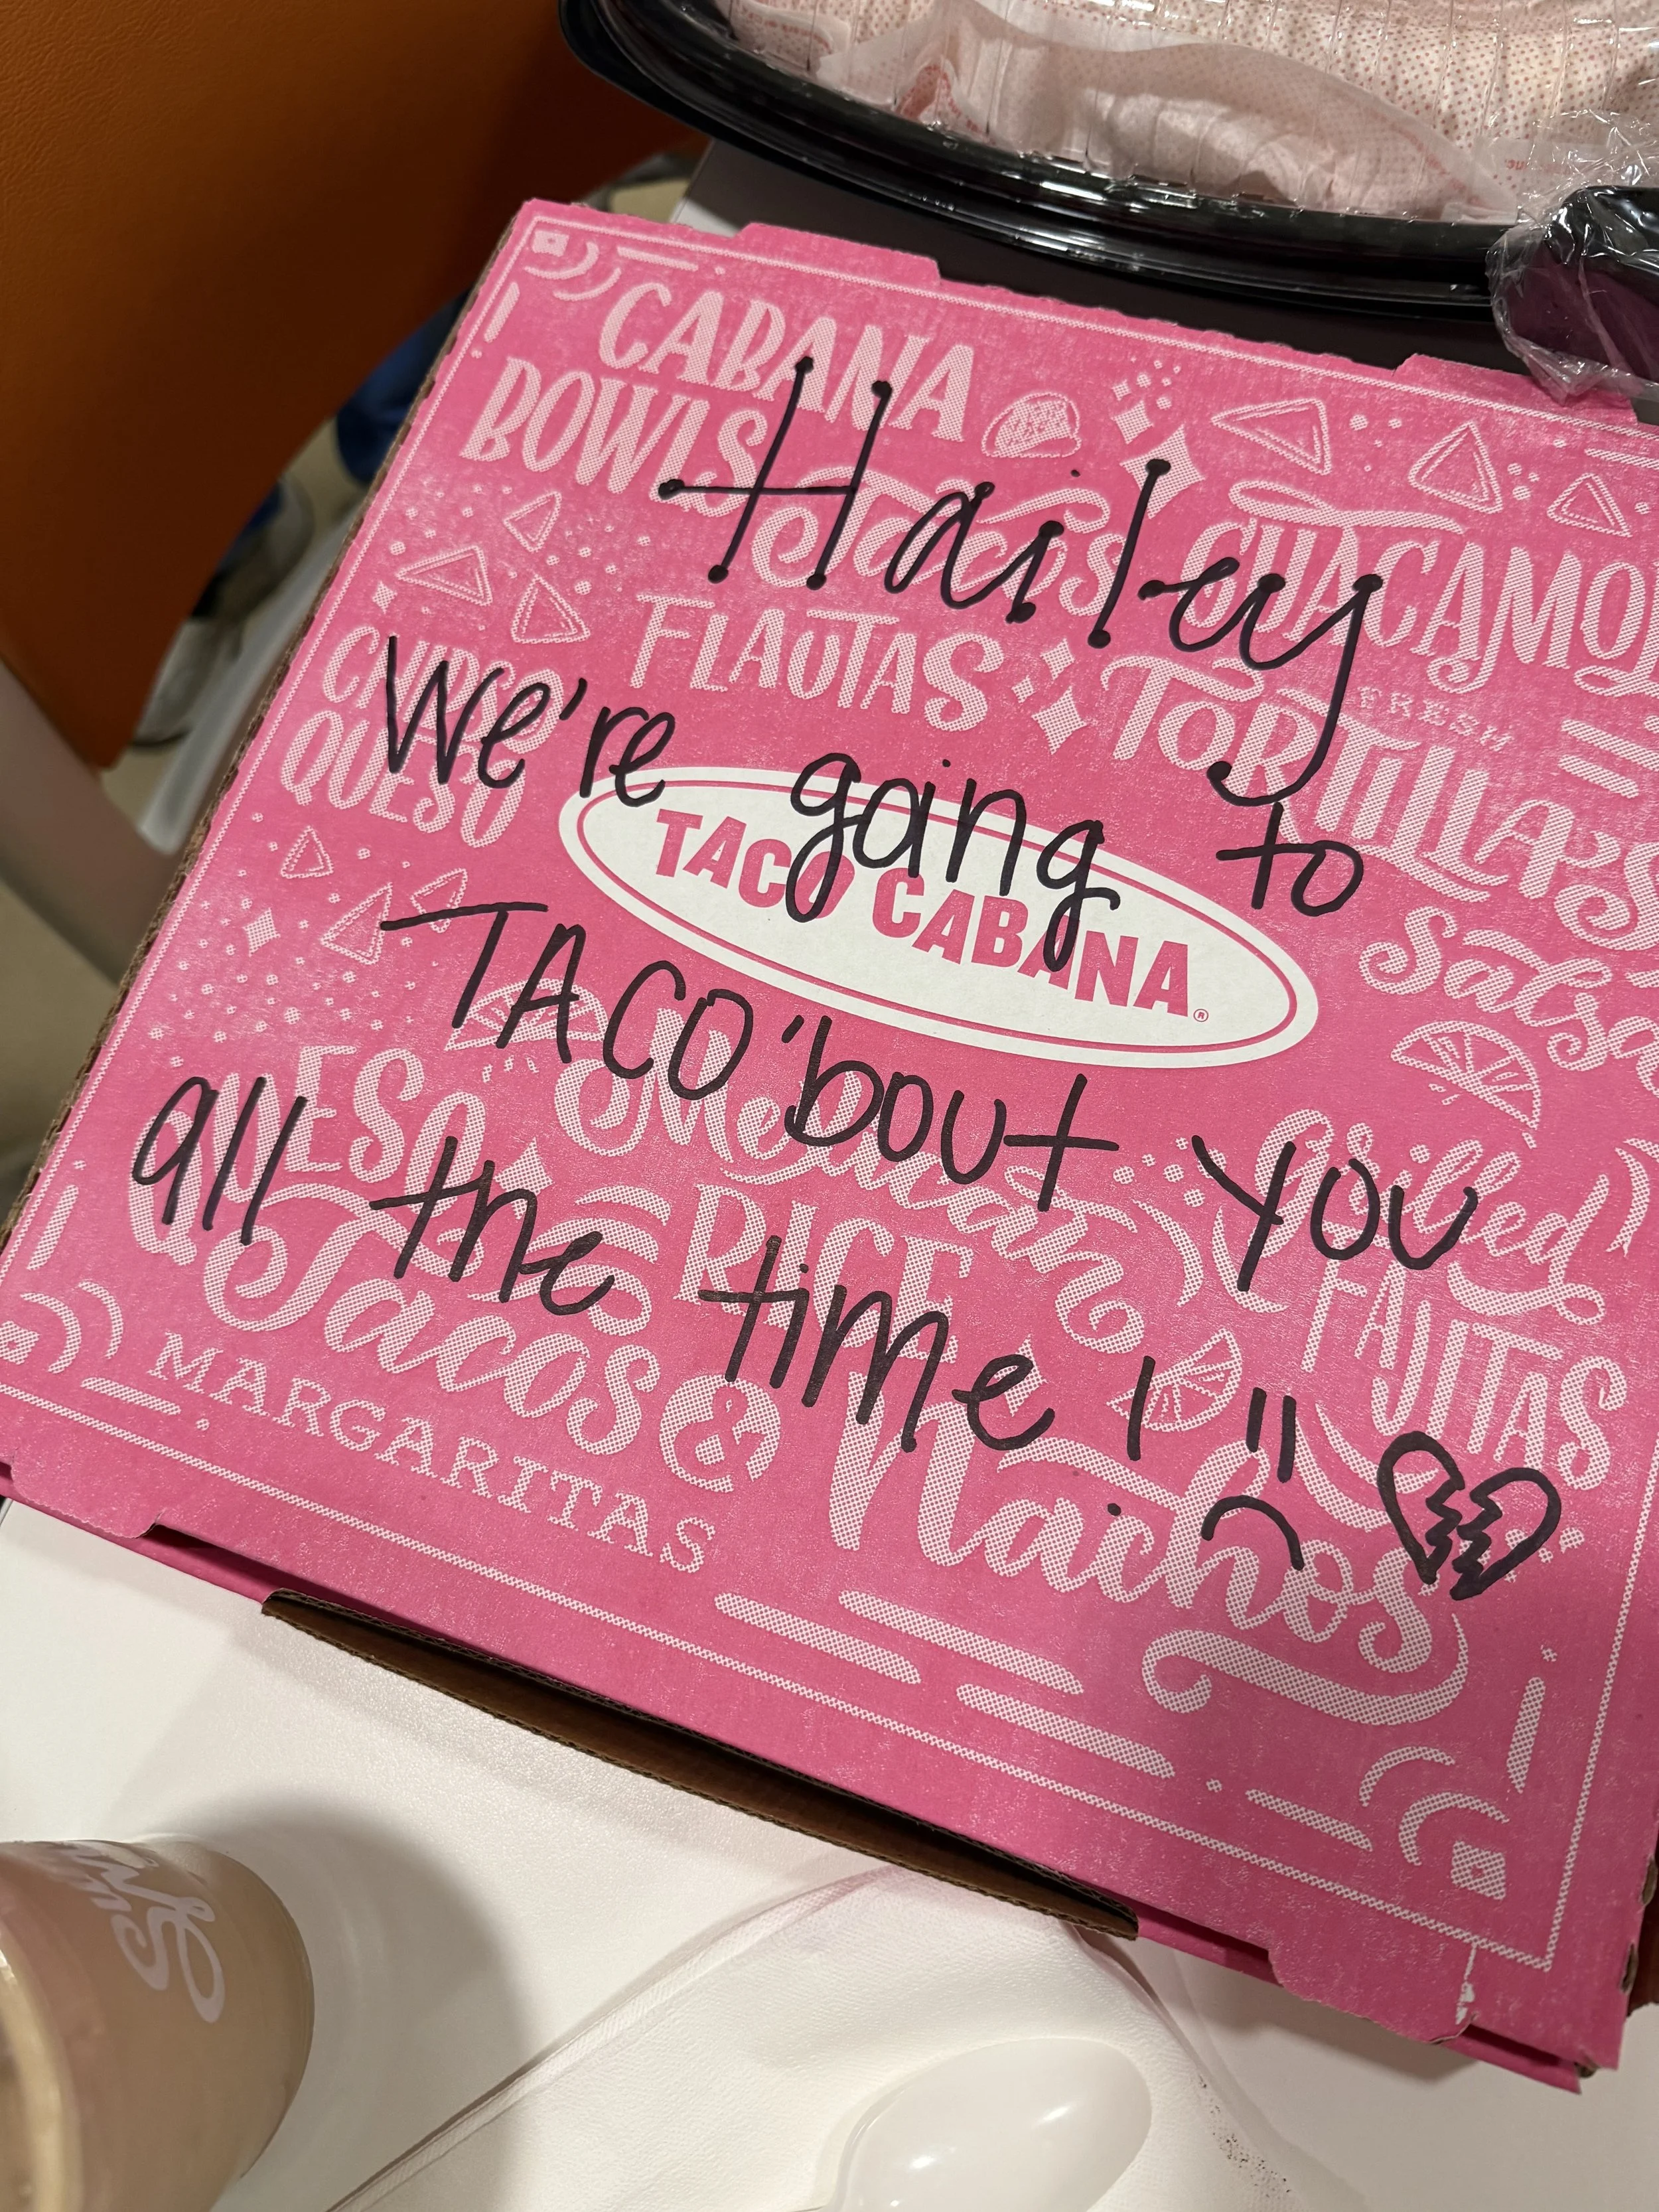 CABANA
BOWLS
Tacos
GUACAMOLE
FLAUTAS
FRESH
TORTILLAS
CHIPS &
QUESO
Salsa
TACO CABANA®
QUESO
Mexican
RICE
Grilled
FAJITAS
Tacos &
Nachos
MARGARITAS
Hailey
We're going to
TACO 'bout you
all the time!